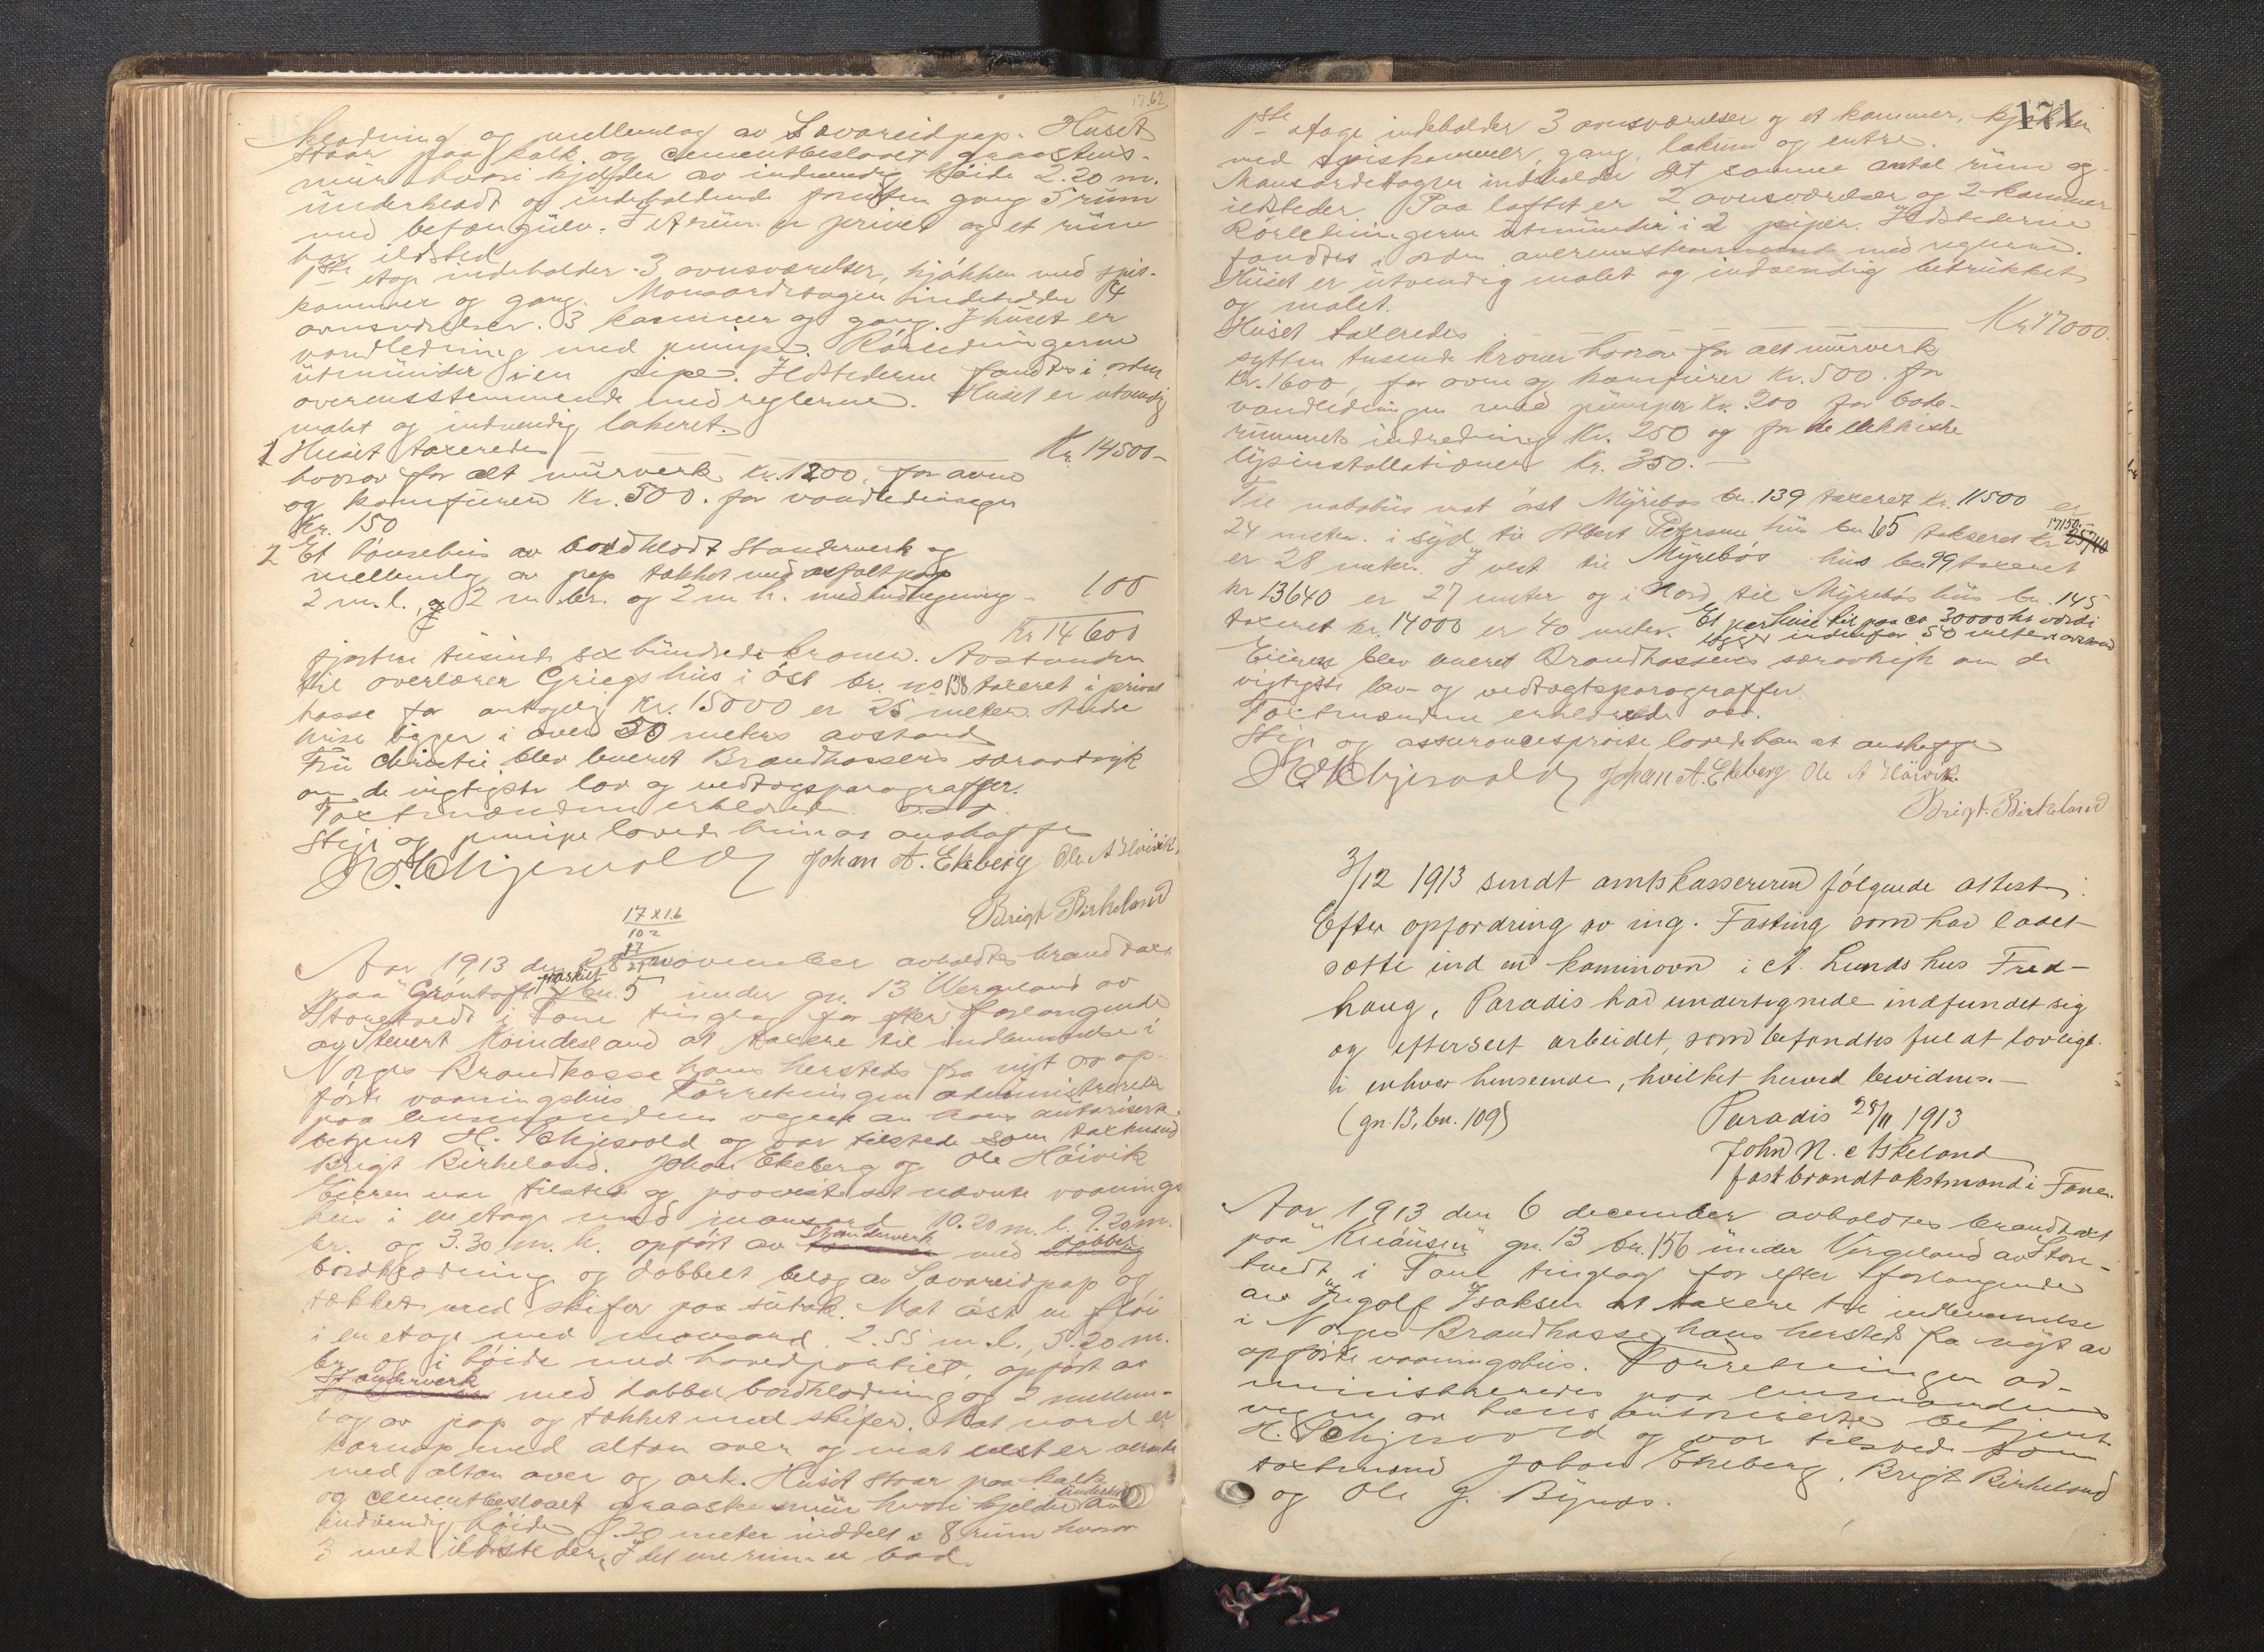 17.62
klædning og mellemlag av Lavareidpap. Huset
staar paa kalk og cementbeslaaet graastens-
mur hvori kjelder av indvendig høide 2.20 m.
underkledt og indeholdende foruten gang 5 rum
med betongulv. I et rum er privet og et rum
har ildsted
1ste etage indeholder 3 ovnsværelser, kjøkken med spis-
kammer og gang. Mansardetagen indeholder 4
ovnsværelser. 3 kammer og gang. I huset er
vandledning med pumpe. Rørledningerne
utmunder i en pipe. Ildstederne fandtes i orden
overensstemmende med reglerne. Huset er utvendig
malet og indvendig lakeret.
1 Huset taxeredes Kr. 14500-
hvorav for alt murverk Kr. 1200, for ovne
og komfurer Kr. 500. for vandledningen
Kr. 150
2 Et hønsehus av bordklædt standerverk og
mellemlag av pap tækket med asfaltpap
2 m. l., og 2 m. br. og 2 m h. med indregning - 100
Kr 14600
fjorten tusinde sexhundrede kroner. Avstanden
til overlærer Griegs hus i øst br. no 138 taxeret i privat
kasse for antagelig Kr. 15000 er 25 meter. Andre
huse ligger i over 50 meters avstand
Fru Christie blev leveret Brandkassens særavtryk
om de vigtigste lov og vedtægtsparagraffer.
Taxtmændene erklærede o.s.v.
Stige og pumpe lovede hun at anskaffe
H. Schjesvold Johan A. Ekeberg Ole A Høivik
Brigt Birkeland
17 x 16
102
17
272
Aar 1913 den 28 november avholdtes brandtaxt
paa "Grøntoft" fraskilt bn. 5 under gn. 13 Wergeland av
Storetvedt i Fane tinglag for efter forlangende
av Stenert Moindesland at taxere til indlemmelse i
Norges Brandkasse hans hersteds fra nyt av op-
førte vaaningshus. Forretningen administreredes
paa lensmandens vegne av hans autoriserte
betjent H. Schjesvold og var tilstede som taxtmænd
Brigt Birkeland. Johan Ekeberg og Ole Høivik
Eieren var tilstede og paaviste sit nævnte vaanings
hus i en etage med mansard 10.20 m. l. 9.20 m.
br. og 3.30 m. h. opført av standerverk med dobbel
bordklædning og dobbelt belæg av Lavareidpap og
tækket med skifer paa sutak. Mot øst en fløi
i en etage med mansard 2.55 m. l., 5.20 m.
br. og i høide med hovedpartiet, opført av
Standerverk med dobbel bordklædning og 2 mellem-
lag av pap og tækket med skifer. Mot nord er
karnap med altan over og mot vest er veranda
med altan over og ark. Huset staar paa kalk
og cementbeslaaet graastensmur hvori kjelder underkledt av
indvendig høide 2.20 meter inddelt i 8 rum hvorav
3 med ildsteder, I det ene rum er bad.
171
1ste etage indeholder 3 ovnsværelser og et kammer, kjøkken
med spiskammer, gang, lokum og entre.
Mansardetagen indeholder det samme antal rum og
ildsteder. Paa loftet er 2 ovnsværelser og 2 kammer
Rørledningerne utmunder i 2 piper. Ildstederne
fandtes i orden overensstemmende med reglerne.
Huset er utvendig malet og indvendig betrukket
og malet.
Huset taxeredes Kr 17000.
sytten tusende kroner hvorav for alt murverk
Kr. 1600, for ovne og komfurer Kr. 500. for
vandledningen med pumper Kr. 200 for bade-
rummets indredning Kr. 250 og for de elektriske
lysinstallationer Kr. 350.-
Til nabohus mot øst Myrebøs bn. 139 taxeret Kr. 11500 er
24 meter. i syd til Albert Petersens hus bn 65 takseret Kr 17150.- 25740
er 28 meter. I vest til Myrebøs hus bn 99 taxeret
kr 13640 er 27 meter og i Nord til Myrebøs hus bn. 145
taxeret kr. 14000 er 40 meter. Et par huse til paa ca 30000 kr værdi
ligger indenfor 50 meters avstand
Eieren blev leveret Brandkassens særavtryk om de
vigtigste lov- og vedtægtsparagraffer.
Taxtmændene erklærede osv.
Stige og assurancesprøite lovede han at anskaffe
H. Schjesvold Johan A. Ekeberg Ole A Høivik.
Brigt. Birkeland
3/12 1913 sendt amtskassereren følgende attest:
Efter opfordring av ing. Fasting som har ladet
sætte ind en kaminovn i A. Lunds hus Fred-
haug, Paradis har undertegnede indfundet sig
og efterseet arbeidet, som befandtes fuldt lovlige
i enhver henseende, hvilket herved bevidnes.-
(gn. 13, bn. 109) Paradis 28/11 1913
John N. Askeland
fast brandtakstmand i Fane.
Aar 1913 den 6 december avholdtes brandtaxt
paa "Knausen" gn. 13 bn. 156 under Vergeland av Store-
tvedt i Fane tinglag for efter forlangende
av Ingolf Isaksen at taxere til indlemmelse
i Norges Brandkasse hans hersteds fra nyt av
opførte vaaningshus. Forretningen ad-
ministreredes paa lensmandens
vegne av hans autoriserte betjent
H. Schjesvold og var tilstede som
taxtmænd Johan Ekeberg, Brigt Birkeland
og Ole G. Bynæs.